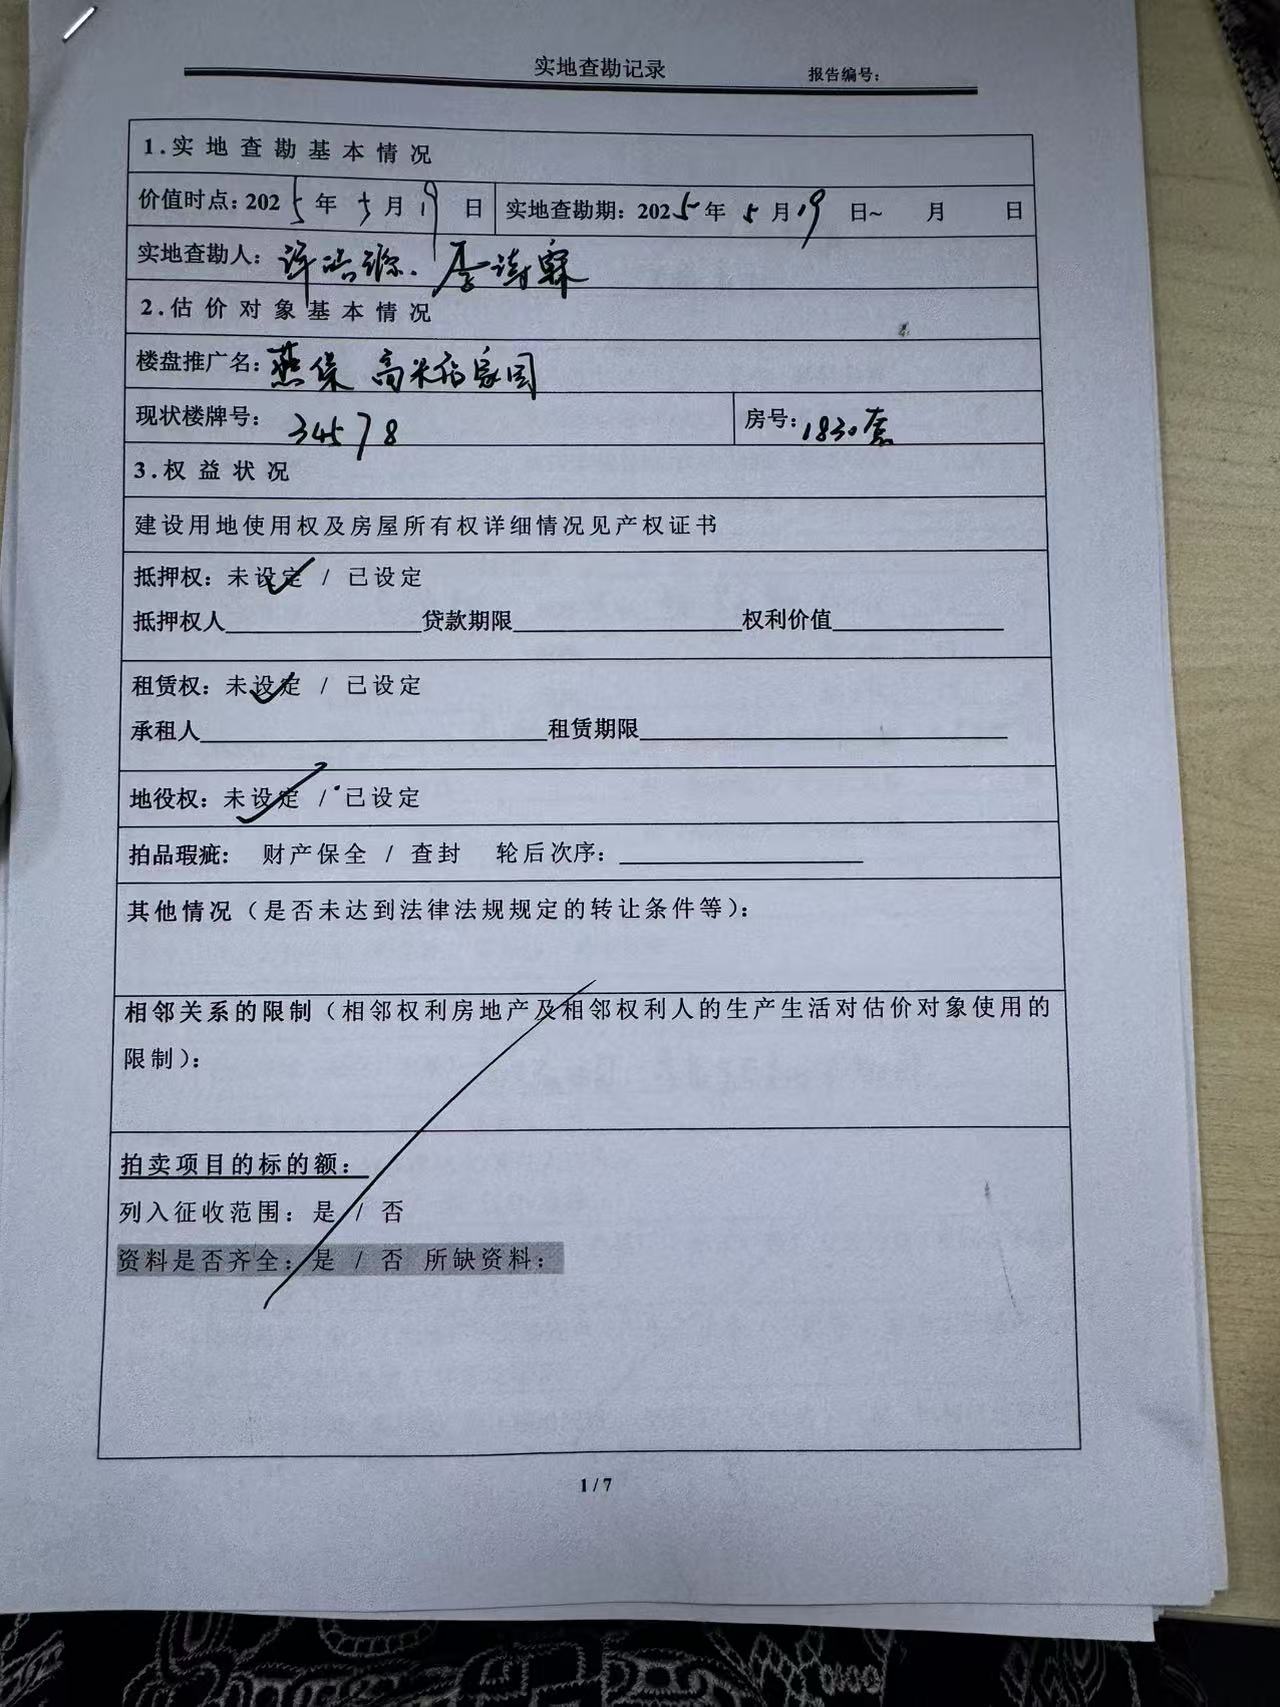 实地查勘记录 报告编号：
1.实地查勘基本情况
价值时点：2025年5月19日 实地查勘期：2025年5月19日~ 月 日
实地查勘人：许 李
2.估价对象基本情况
楼盘推广名：燕保 高米店家园
现状楼牌号：34578 房号：1830套
3.权益状况
建设用地使用权及房屋所有权详细情况见产权证书
抵押权：未设定 / 已设定
抵押权人 贷款期限 权利价值
租赁权：未设定 / 已设定
承租人 租赁期限
地役权：未设定 / 已设定
拍品瑕疵： 财产保全 / 查封 轮后次序：
其他情况（是否未达到法律法规规定的转让条件等）：
相邻关系的限制（相邻权利房地产及相邻权利人的生产生活对估价对象使用的
限制）：
拍卖项目的标的额：
列入征收范围：是 / 否
资料是否齐全：是 / 否 所缺资料：
1/7